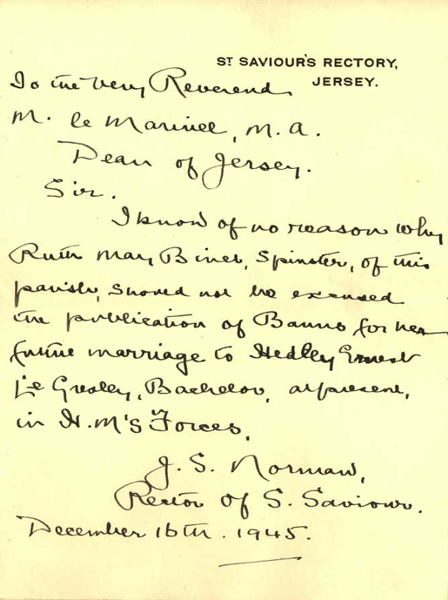 ST SAVIOUR'S RECTORY,
JERSEY.
To the Very Reverend
M. le Marinel, M.A.
Dean of Jersey.
Sir.
I know of no reason why
Ruth May Binet, Spinster, of this
parish, should not be excused
the publication of Banns for her
future marriage to Hedley Ernest
Le Gresley, Bachelor, at present,
in H.M's Forces,
J. S. Norman,
Rector of S. Saviour.
December 16th. 1945.